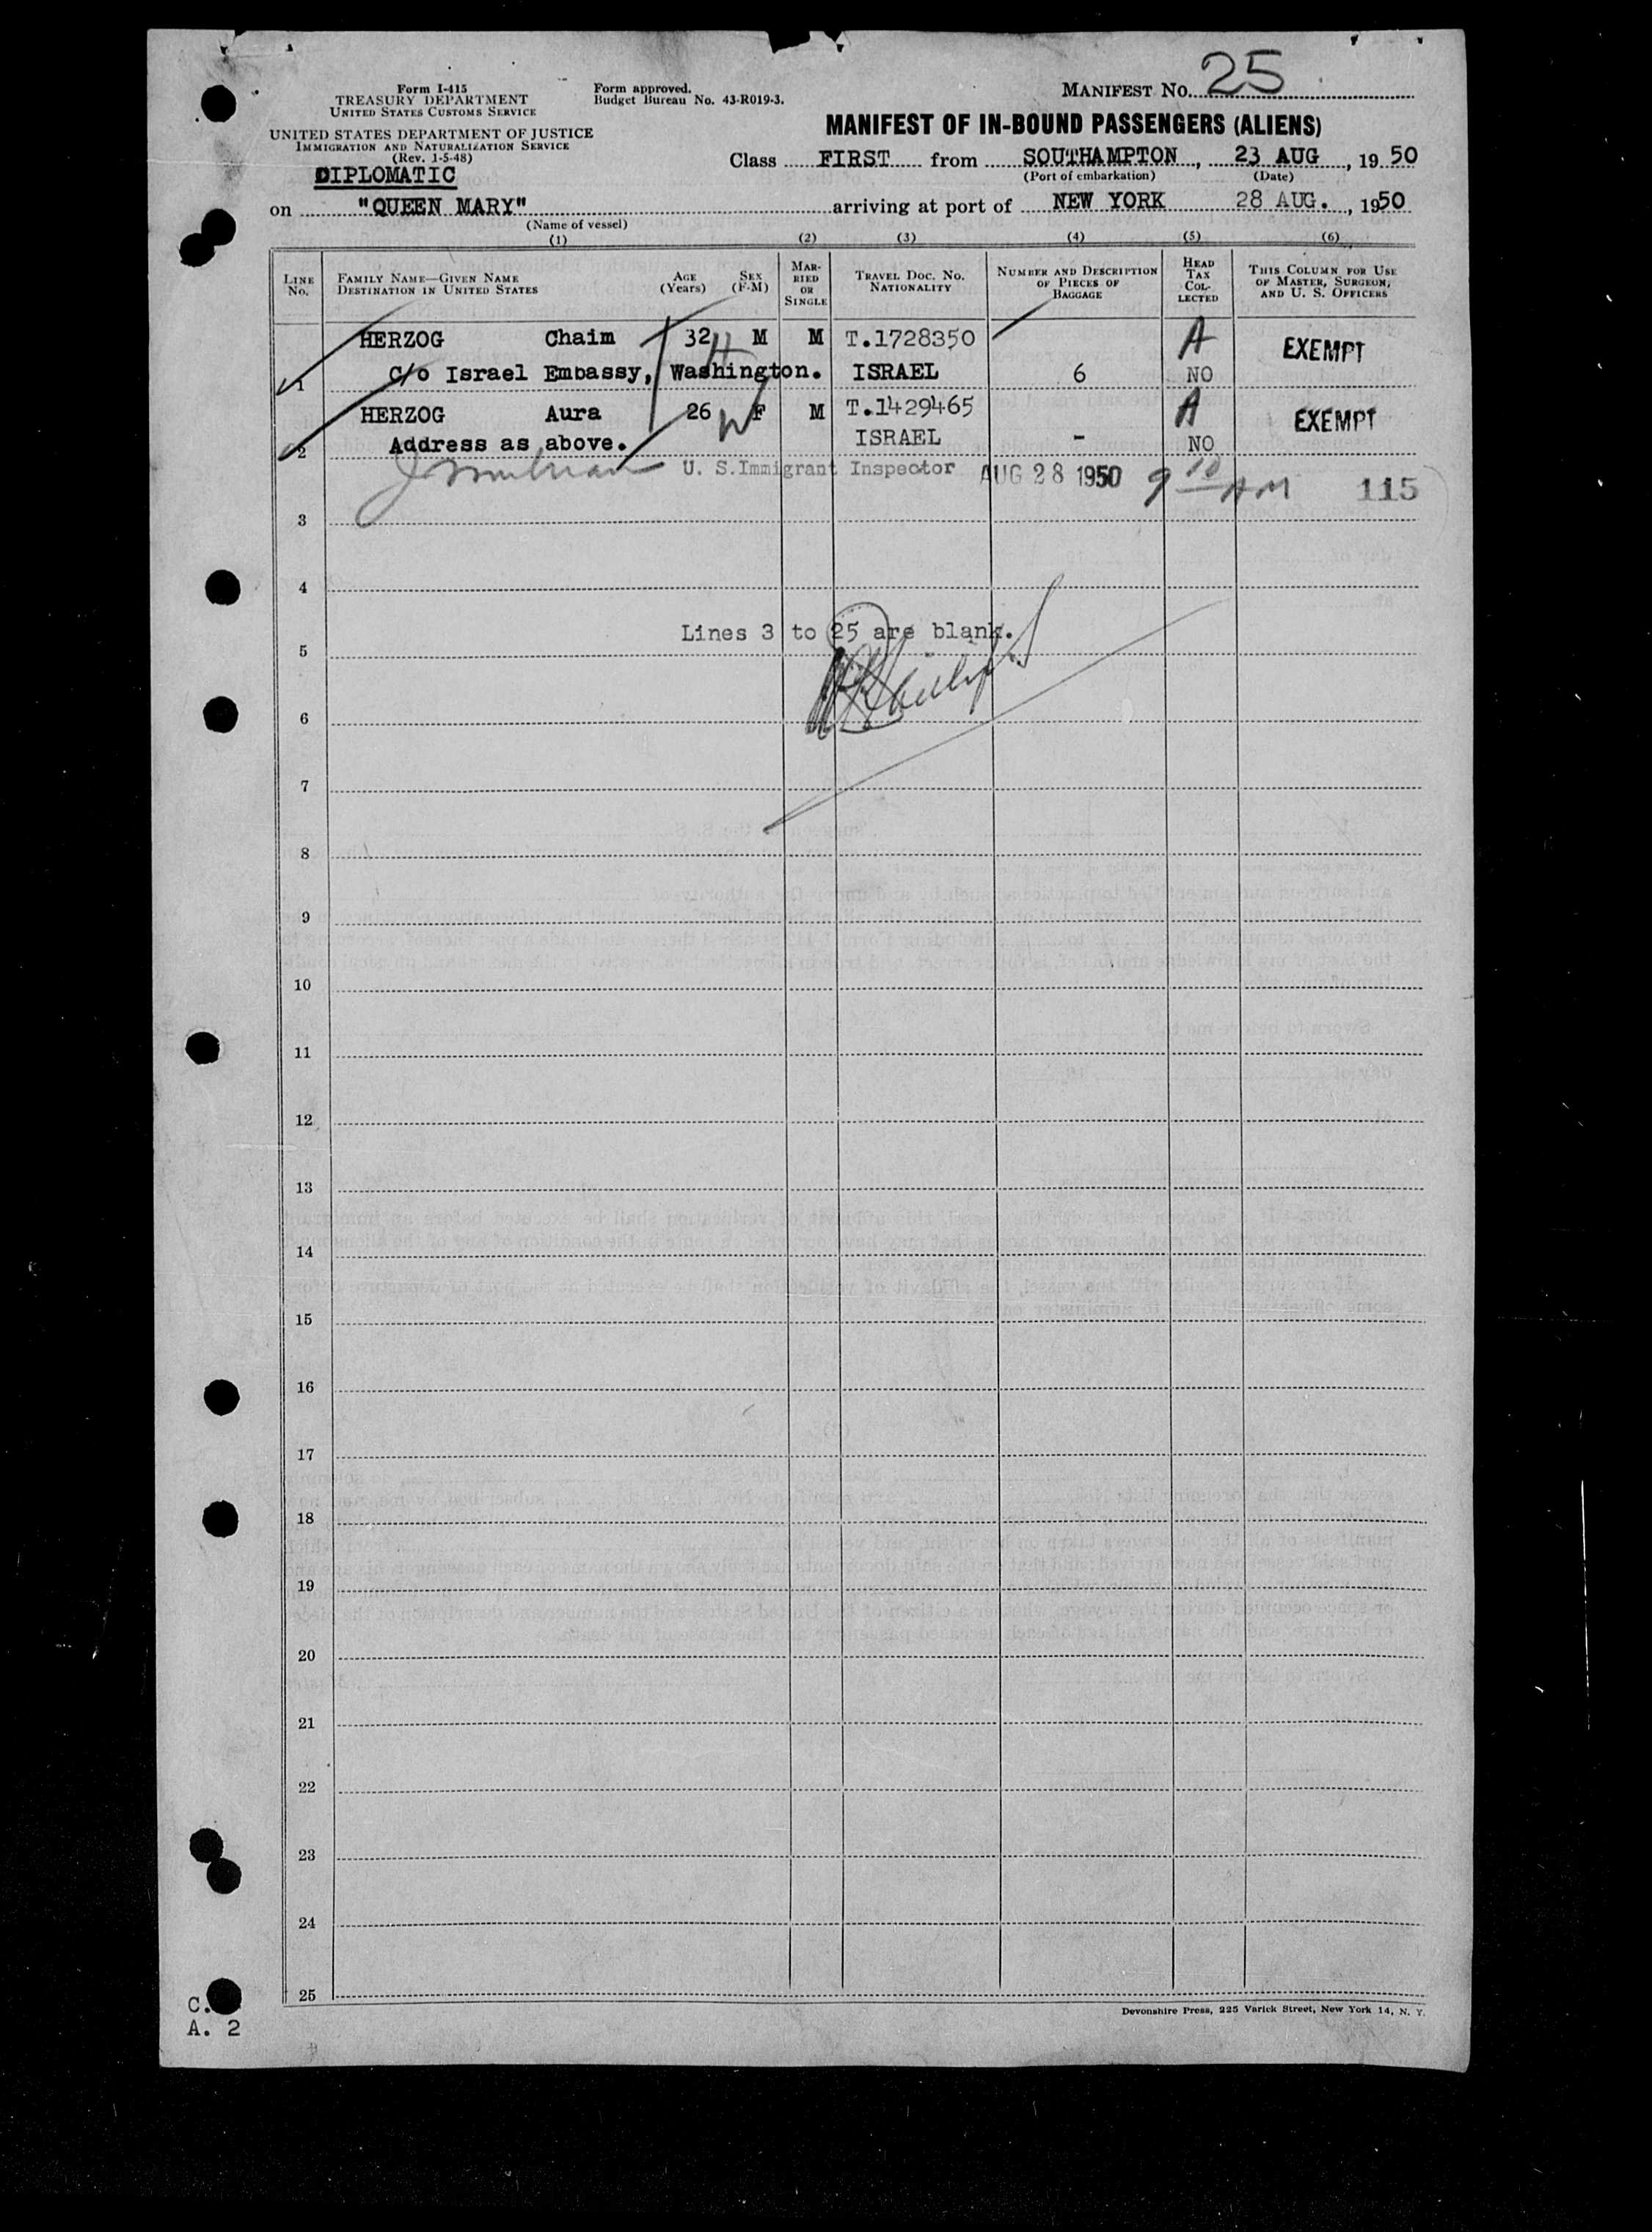 Form I-415
TREASURY DEPARTMENT
UNITED STATES CUSTOMS SERVICE
UNITED STATES DEPARTMENT OF JUSTICE
IMMIGRATION AND NATURALIZATION SERVICE
(Rev. 1-5-48)
DIPLOMATIC
Form approved.
Budget Bureau No. 43-R019-3.
MANIFEST No. 25
MANIFEST OF IN-BOUND PASSENGERS (ALIENS)
Class FIRST from SOUTHAMPTON, 23 AUG, 19 50
(Port of embarkation) (Date)
on "QUEEN MARY" arriving at port of NEW YORK 28 AUG., 1950
(Name of vessel)
(1) (2) (3) (4) (5) (6)
LINE No. FAMILY NAME—GIVEN NAME DESTINATION IN UNITED STATES AGE (Years) SEX (F-M) MARRIED OR SINGLE TRAVEL DOC. NO. NATIONALITY NUMBER AND DESCRIPTION OF PIECES OF BAGGAGE HEAD TAX COLLECTED THIS COLUMN FOR USE OF MASTER, SURGEON, AND U. S. OFFICERS
HERZOG Chaim 32 M M T.1728350 A EXEMPT
1 C/o Israel Embassy, Washington. ISRAEL 6 NO
HERZOG Aura 26 W F M T.1429465 A EXEMPT
2 Address as above. ISRAEL - NO
U. S. Immigrant Inspector AUG 28 1950 9 10 AM 115
3
4
Lines 3 to 25 are blank.
5
6
7
8
9
10
11
12
13
14
15
16
17
18
19
20
21
22
23
24
25
Devonshire Press, 225 Varick Street, New York 14, N. Y.
C.
A. 2